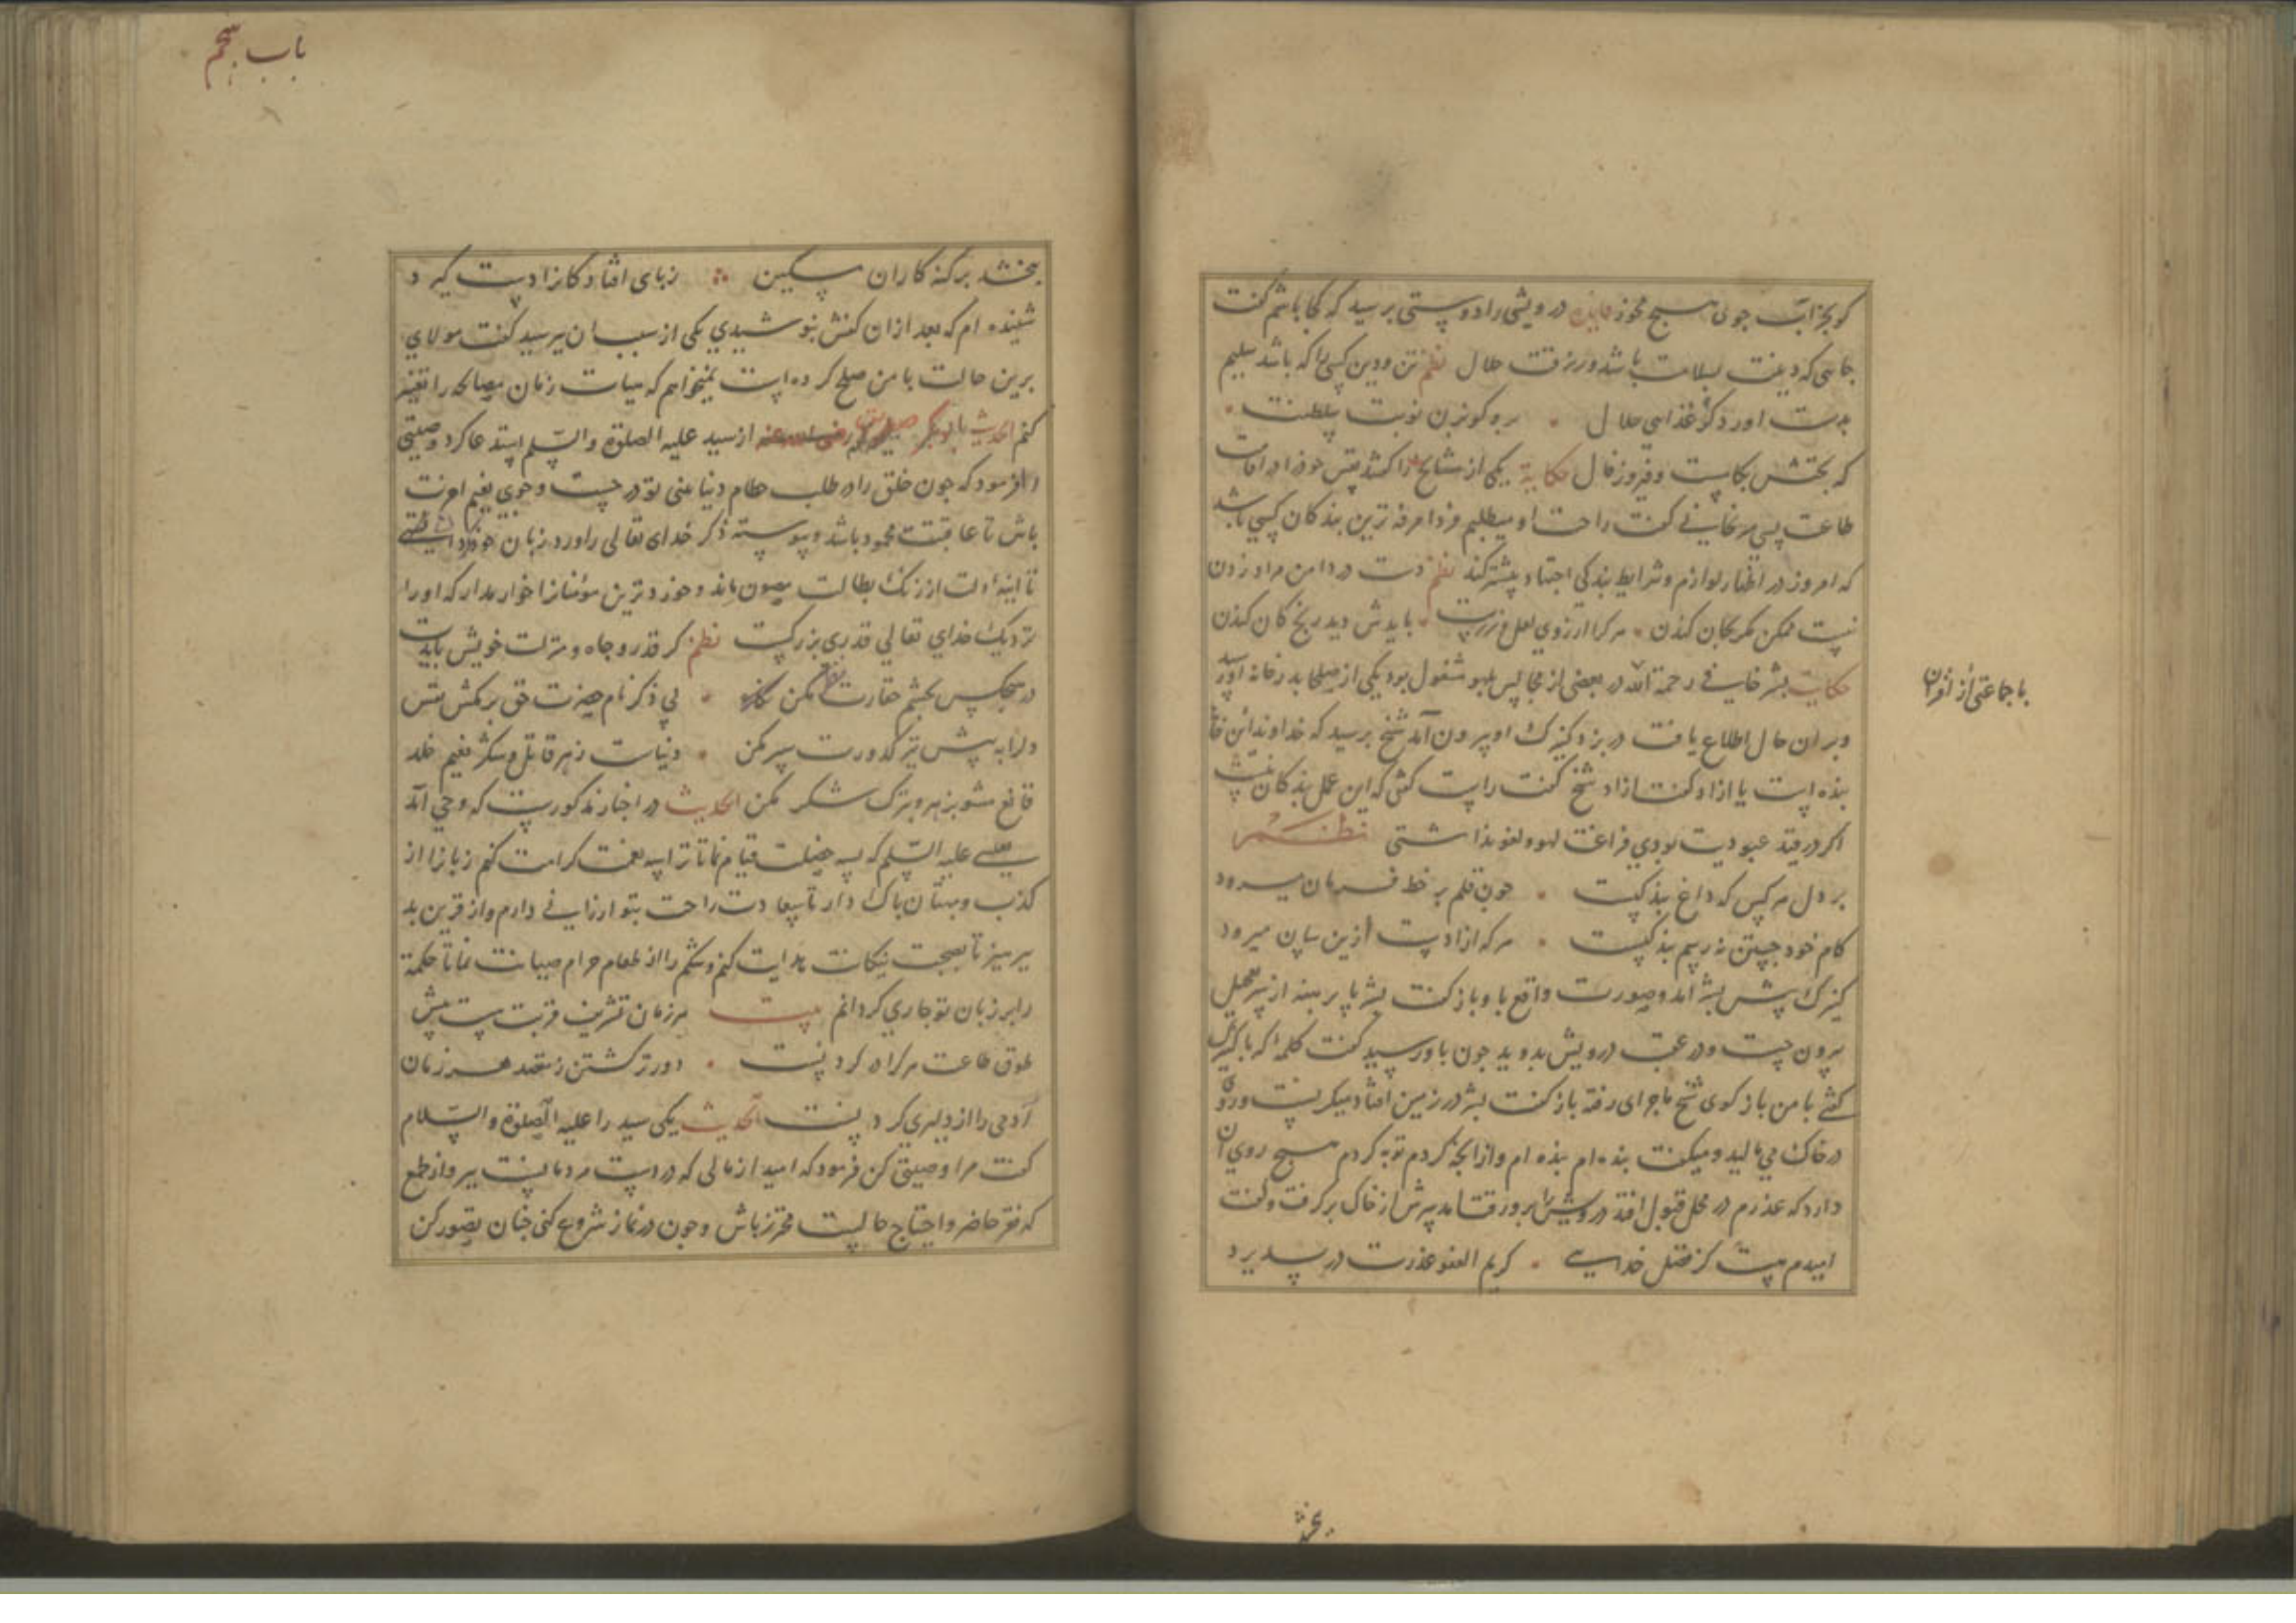 کو بجز ابت جون مسیح مجوز درویشی را دوستی برسید که کجا باشم کفت
جایی که دینت بسلامت باشد و رزقت حلال نظم تن و دین کسی را که باشد سلیم
بدست اورد کو غذایی حلال برو کو بزن نوبت سلطنت
که بختش بکاست و فیروز فال حکایة یکی از مشایخ را کفتند نفس خود را در اقامت
طاعت بسی می‌رنجانی کفت راحت او میطلبم فردا مرفه ترین بندکان کسی باشد
که امروز در اظهار لوازم و شرایط بندکی اجتهاد بیشتر کند نظم دست در دامن مراد زدن
نیست ممکن مکر بجان کندن هر کرا ارزوی لعل و زرست بایدش دید رنج کان کندن
حکایت بشر حافی رحمة الله در بعضی از مجالس بلهو مشغول بود یکی از صلحا بدر خانه او رسید
با جماعتی از اقران
و بر ان حال اطلاع یافت در بزد کنیزک او بیرون آمد شیخ برسید که خداوند این خانه
بنده است یا ازاد کفت ازاد شیخ کفت راست کفتی که این عمل بندکان نیست
اکر در قید عبودیت بودی فراغت لهو و لغو نداشتی نظم
بر دل هر کس که داغ بندکیست جون قلم بر خط فرمان میرود
کام خود جستن نه رسم بندکیست هر که ازادست ازین سان میرود
کنیزک پیش بشر امد و صورت واقع با او باز کفت بشر پا برهنه از سر تعجیل
بیرون جست و در عقب درویش بدوید جون باو رسید کفت کلمه که با کنیزک
کفتی با من باز کوی شیخ ماجرای رفته باز کفت بشر در زمین افتاد میکریست و روی
در خاک می مالید و میکفت بنده ام بنده ام و از انچه کردم توبه کردم هیچ روی آن
دارد که عذرم در محل قبول افتد درویش را برو رقت امد سرش از خاک برکرفت و کفت
امیدم هست کز فضل خدایی کریم العفو عذرت در پذیرد
بخشد
باب پنجم
ببخشد بر کنه کاران مسکین زبای افتادکانرا دست کیرد
شنیده ام که بعد از ان کفش نپوشیدی یکی از سبب ان پرسید کفت مولای
برین حالت با من صلح کرده است نمیخواهم که هیات زمان مصالحه را تغییر
کنم الحدیث ابوبکر صدیق رضی الله عنه از سید علیه الصلوة والسلم استدعا کرد وصیتی
را فرمود که جون خلق را در طلب حطام دنیا بینی تو در جست و جوی نعیم اخرت
باش تا عاقبتت محمود باشد و پیوسته ذکر خدای تعالی را ورد زبان خود
تا اینهٔ دلت از زنک بطالت مصون ماند و خردترین مؤمنانرا خوار مدار که او را
نزدیک خدای تعالی قدری بزرکست نظم کر قدر و جاه و منزلت خویش بایدت
در هیچکس بچشم حقارت مکن نظر بی ذکر نام حضرت حق بر مکش نفس
دل را به پیش تیر کدورت سپر مکن دنیات زهر قاتل و شکر نعیم خلد
قانع مشو بزهر و بترک شکر مکن الحدیث در اخبار مذکورست که وحی آمد
بعیسی علیه السلم که بسه خصلت قیام نما تا ترا سه نعمت کرامت کنم زبانرا از
کذب و بهتان باک دار تا سعادت راحت بتو ارزانی دارم و از قرین بد
بپرهیز تا بصحبت نیکانت هدایت کنم و شکم را از طعام حرام صیانت نما تا حکمة
را بر زبان تو جاری کردانم بیت هر زمان تشریف قربت بیش
طوق طاعت هر کرا در کردنست دورتر کشتن ز مقصد هر زمان
آدمی را از دلیری کردنست الحدیث یکی سید را علیه الصلوة والسلام
کفت مرا وصیتی کن فرمود که امید از مالی که در دست مردمانست ببر و از طمع
که فقر حاضر و احتیاج حالیست محترز باش و جون در نماز شروع کنی جنان تصور کن